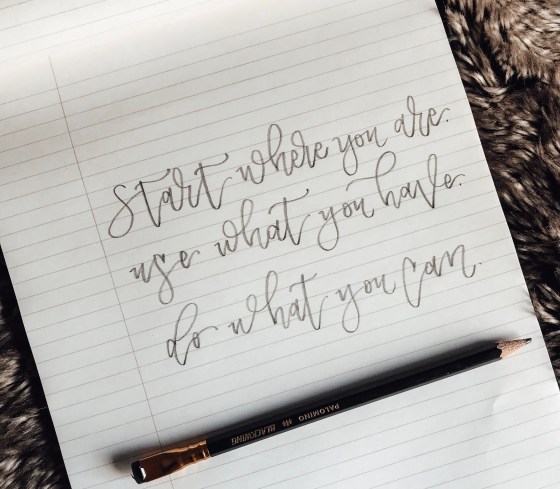 Start where you are.
use what you have.
do what you can.
PALOMINO BLACKWING